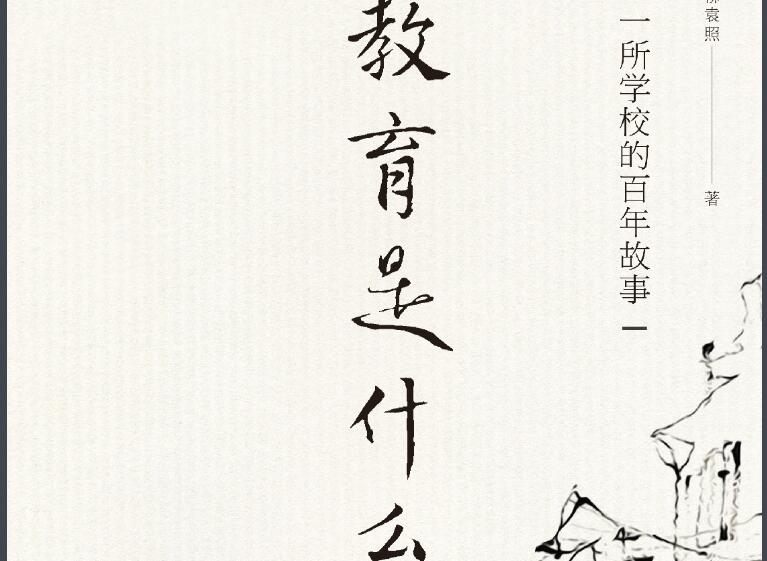 袁照 著
一所学校的百年故事
教育是什么